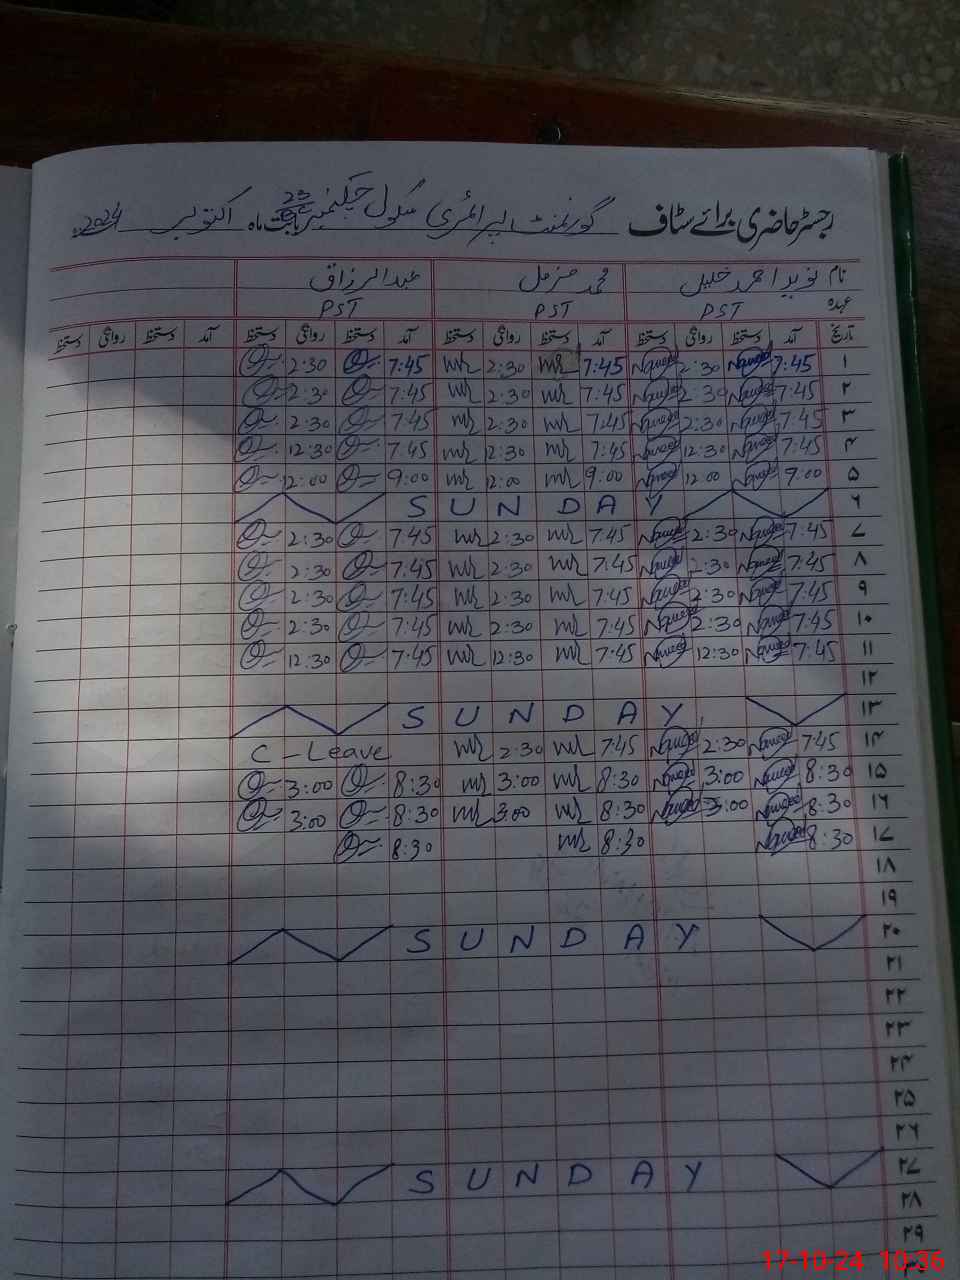 رجسٹر حاضری برائے سٹاف گورنمنٹ پرائمری سکول چکنمبر 23 بابت ماہ اکتوبر 2024ء
نام نوید احمد خلیل محمد مزمل عبدالرزاق
عہدہ PST PST PST
تاریخ آمد دستخط روانگی دستخط آمد دستخط روانگی دستخط آمد دستخط روانگی دستخط آمد دستخط روانگی دستخط
۱ 7:45 Naveed 2:30 Naveed 7:45 MZ 2:30 MZ 7:45 2:30
۲ 7:45 Naveed 2:30 Naveed 7:45 MZ 2:30 MZ 7:45 2:30
۳ 7:45 Naveed 2:30 Naveed 7:45 MZ 2:30 MZ 7:45 2:30
۴ 7:45 Naveed 12:30 Naveed 7:45 MZ 12:30 MZ 7:45 12:30
۵ 9:00 Naveed 12:00 Naveed 9:00 MZ 12:00 MZ 9:00 12:00
۶ SUNDAY
۷ 7:45 Naveed 2:30 Naveed 7:45 MZ 2:30 MZ 7:45 2:30
۸ 7:45 Naveed 2:30 Naveed 7:45 MZ 2:30 MZ 7:45 2:30
۹ 7:45 Naveed 2:30 Naveed 7:45 MZ 2:30 MZ 7:45 2:30
۱۰ 7:45 Naveed 2:30 Naveed 7:45 MZ 2:30 MZ 7:45 2:30
۱۱ 7:45 Naveed 12:30 Naveed 7:45 MZ 12:30 MZ 7:45 12:30
۱۲
۱۳ SUNDAY
۱۴ 7:45 Naveed 2:30 Naveed 7:45 MZ 2:30 MZ C-Leave
۱۵ 8:30 Naveed 3:00 Naveed 8:30 MZ 3:00 MZ 8:30 3:00
۱۶ 8:30 Naveed 3:00 Naveed 8:30 MZ 3:00 MZ 8:30 3:00
۱۷ 8:30 Naveed 8:30 MZ 8:30
۱۸
۱۹
۲۰ SUNDAY
۲۱
۲۲
۲۳
۲۴
۲۵
۲۶
۲۷ SUNDAY
۲۸
۲۹
17-10-24 10:36